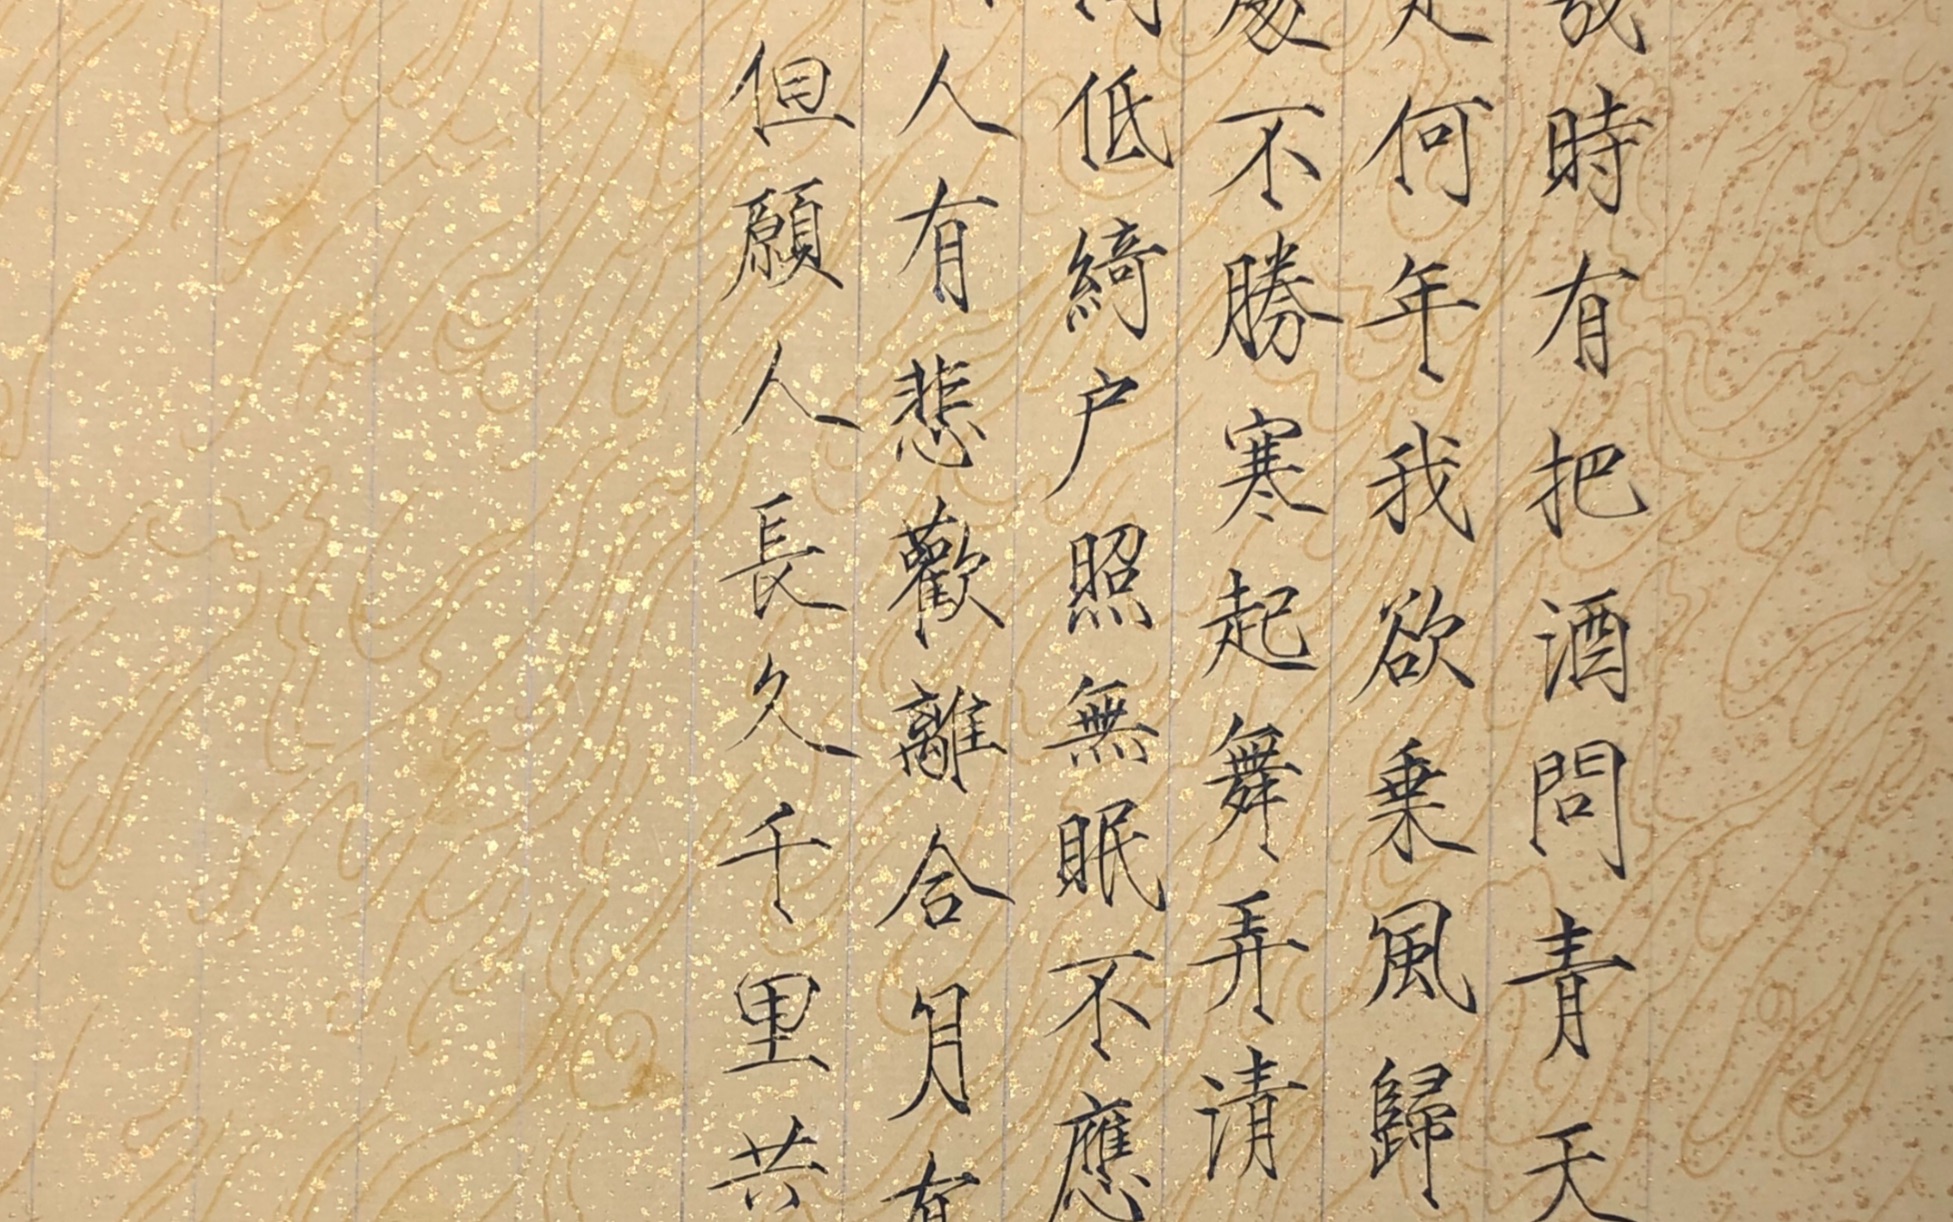 時有把酒問青天
何年我欲乗風歸
不勝寒起舞弄清
低綺户照無眠不應
人有悲歡離合月有
但願人長久千里共